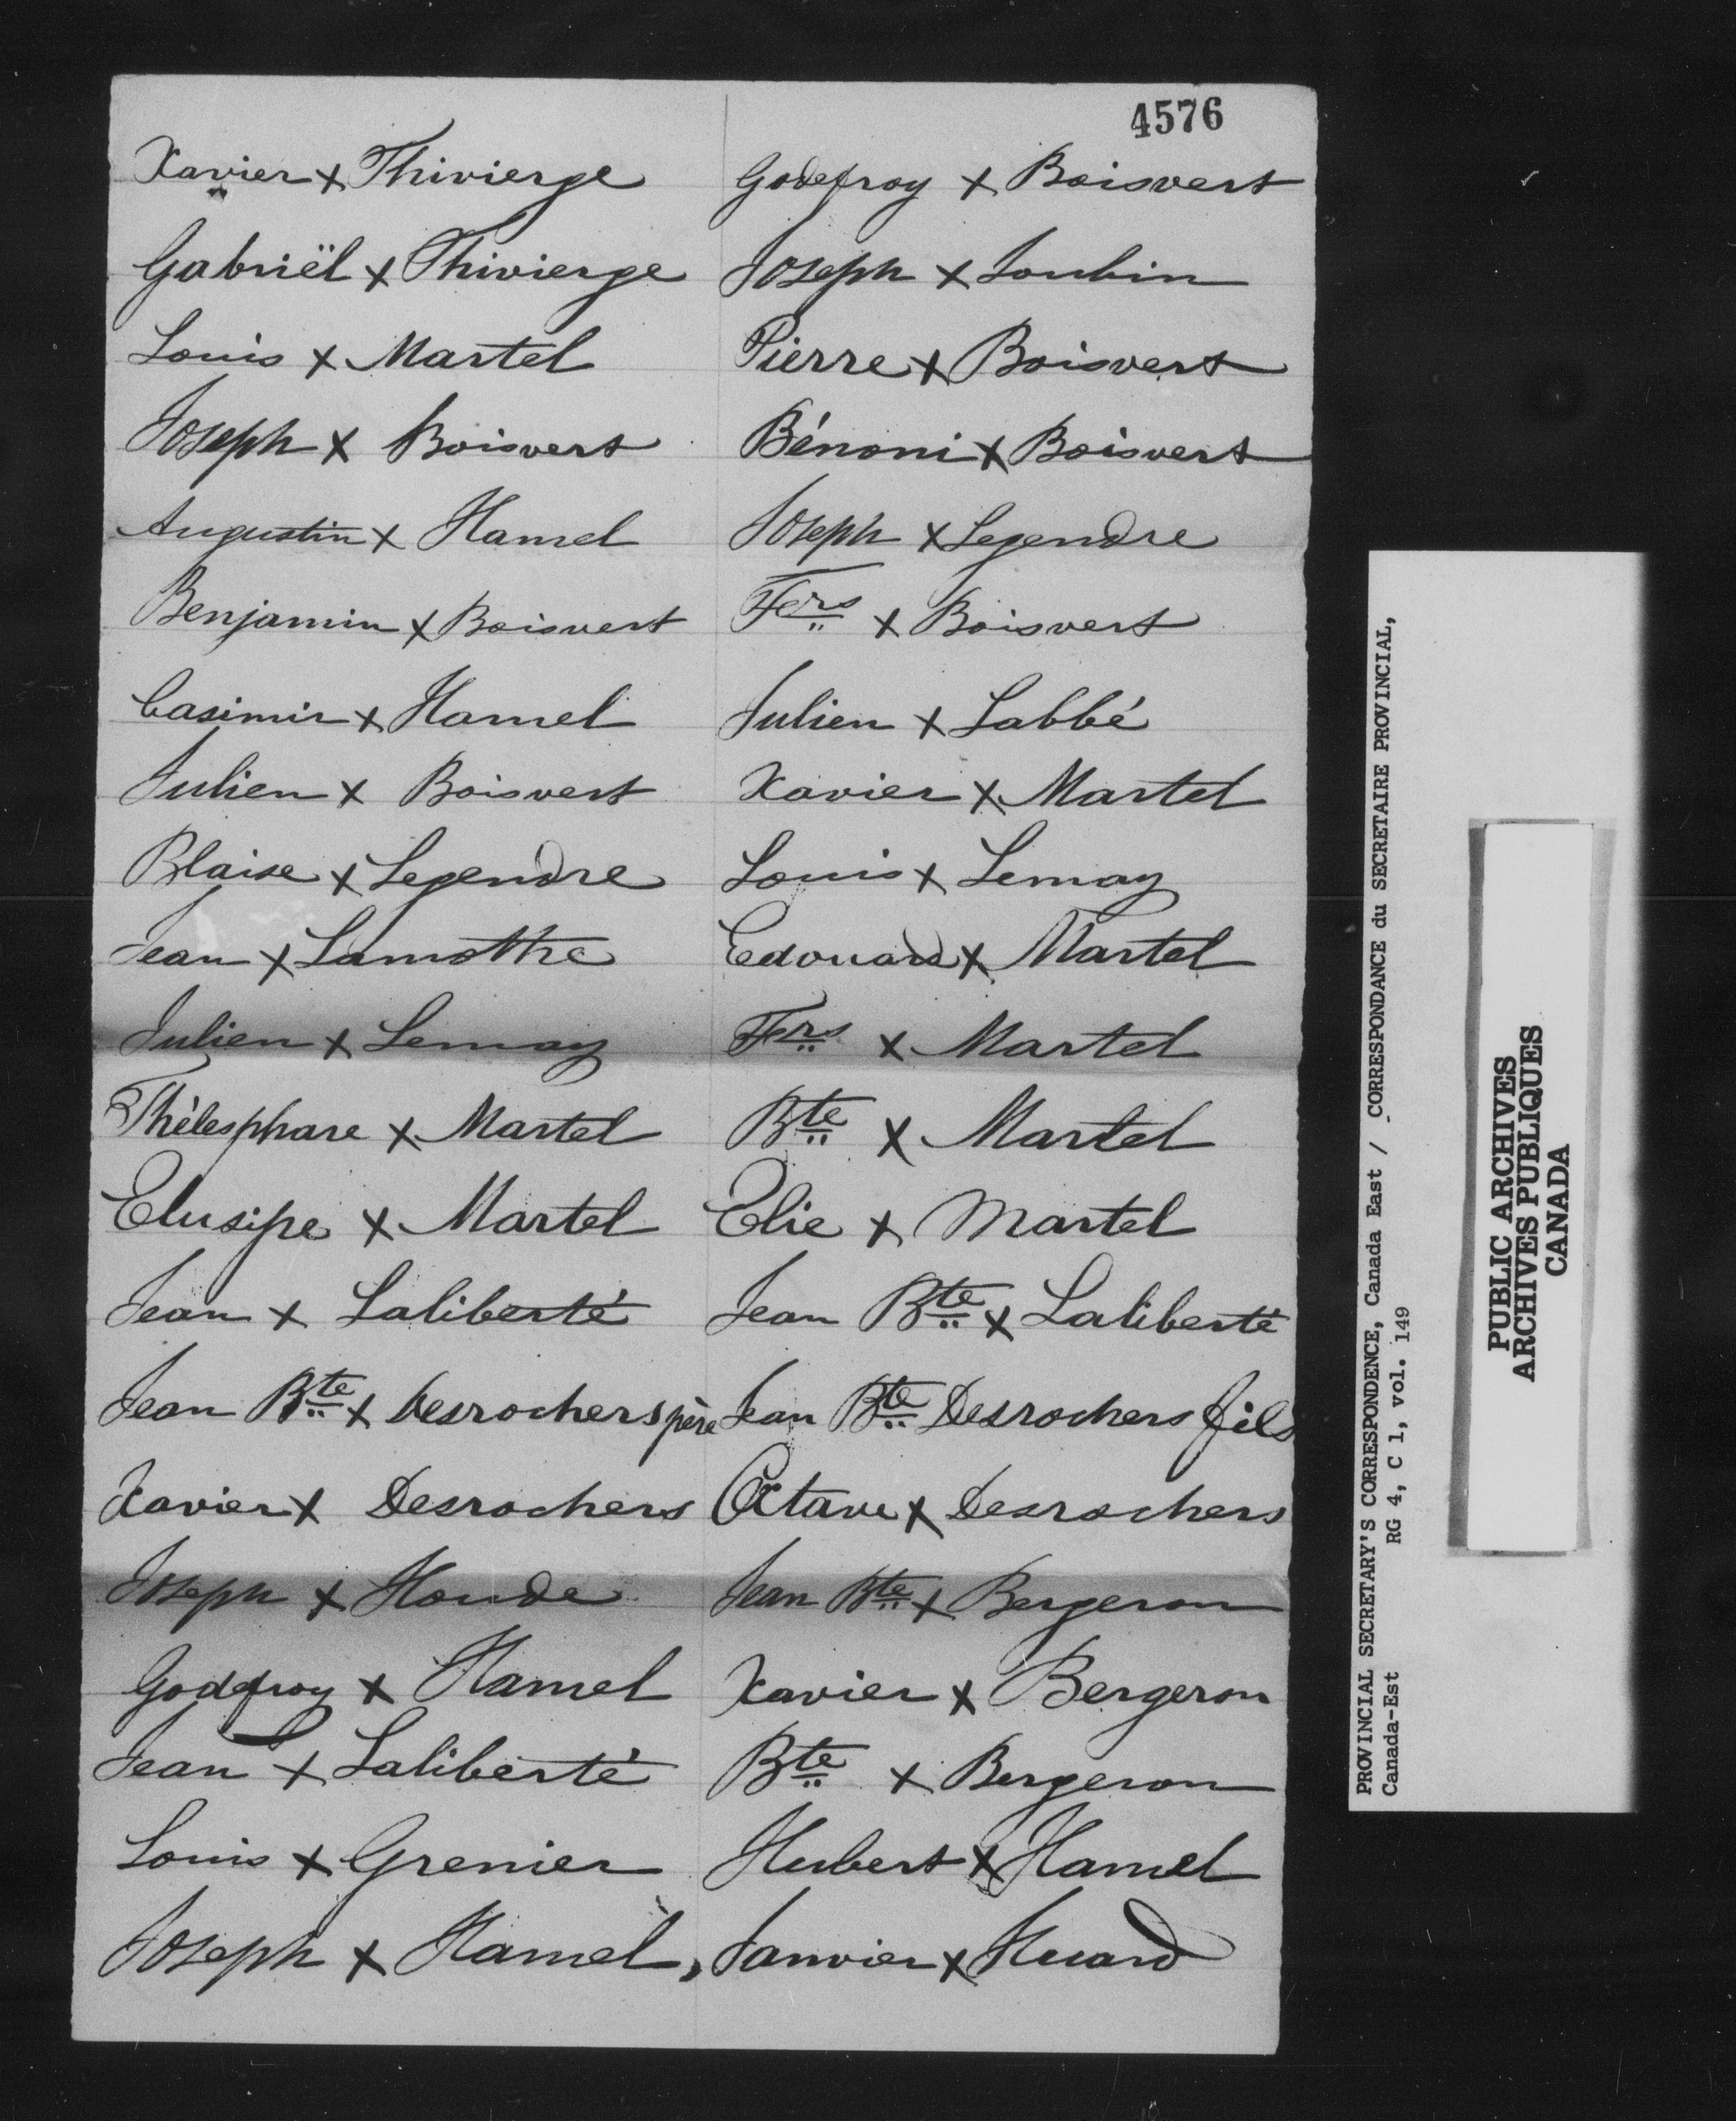 4576
Xavier x Thivierge
Gabriël x Thivierge
Louis x Martel
Joseph x Boisvert
Augustin x Hamel
Benjamin x Boisvert
Casimir x Hamel
Julien x Boisvert
Blaise x Legendre
Jean x Lamothe
Julien x Lemay
Thélesphare x Martel
Elusipe x Martel
Jean x Laliberté
Jean Bte x Desrochers père
Xavier x Desrochers
Joseph x Houde
Godefroy x Hamel
Jean x Laliberté
Louis x Grenier
Joseph x Hamel,
Godefroy x Boisvert
Joseph x Joubin
Pierre x Boisvert
Bénoni x Boisvert
Joseph x Legendre
Frs x Boisvert
Julien x Labbé
Xavier x Martel
Louis x Lemay
Edouard x Martel
Frs x Martel
Bte x Martel
Elie x Martel
Jean Bte x Laliberté
Jean Bte Desrochers fils
Octave x Desrochers
Jean Bte x Bergeron
Xavier x Bergeron
Bte x Bergeron
Hubert x Hamel
Janvier x Huard
PROVINCIAL SECRETARY'S CORRESPONDENCE, Canada East / CORRESPONDANCE du SECRETAIRE PROVINCIAL,
Canada-Est RG 4, C 1, vol. 149
PUBLIC ARCHIVES
ARCHIVES PUBLIQUES
CANADA